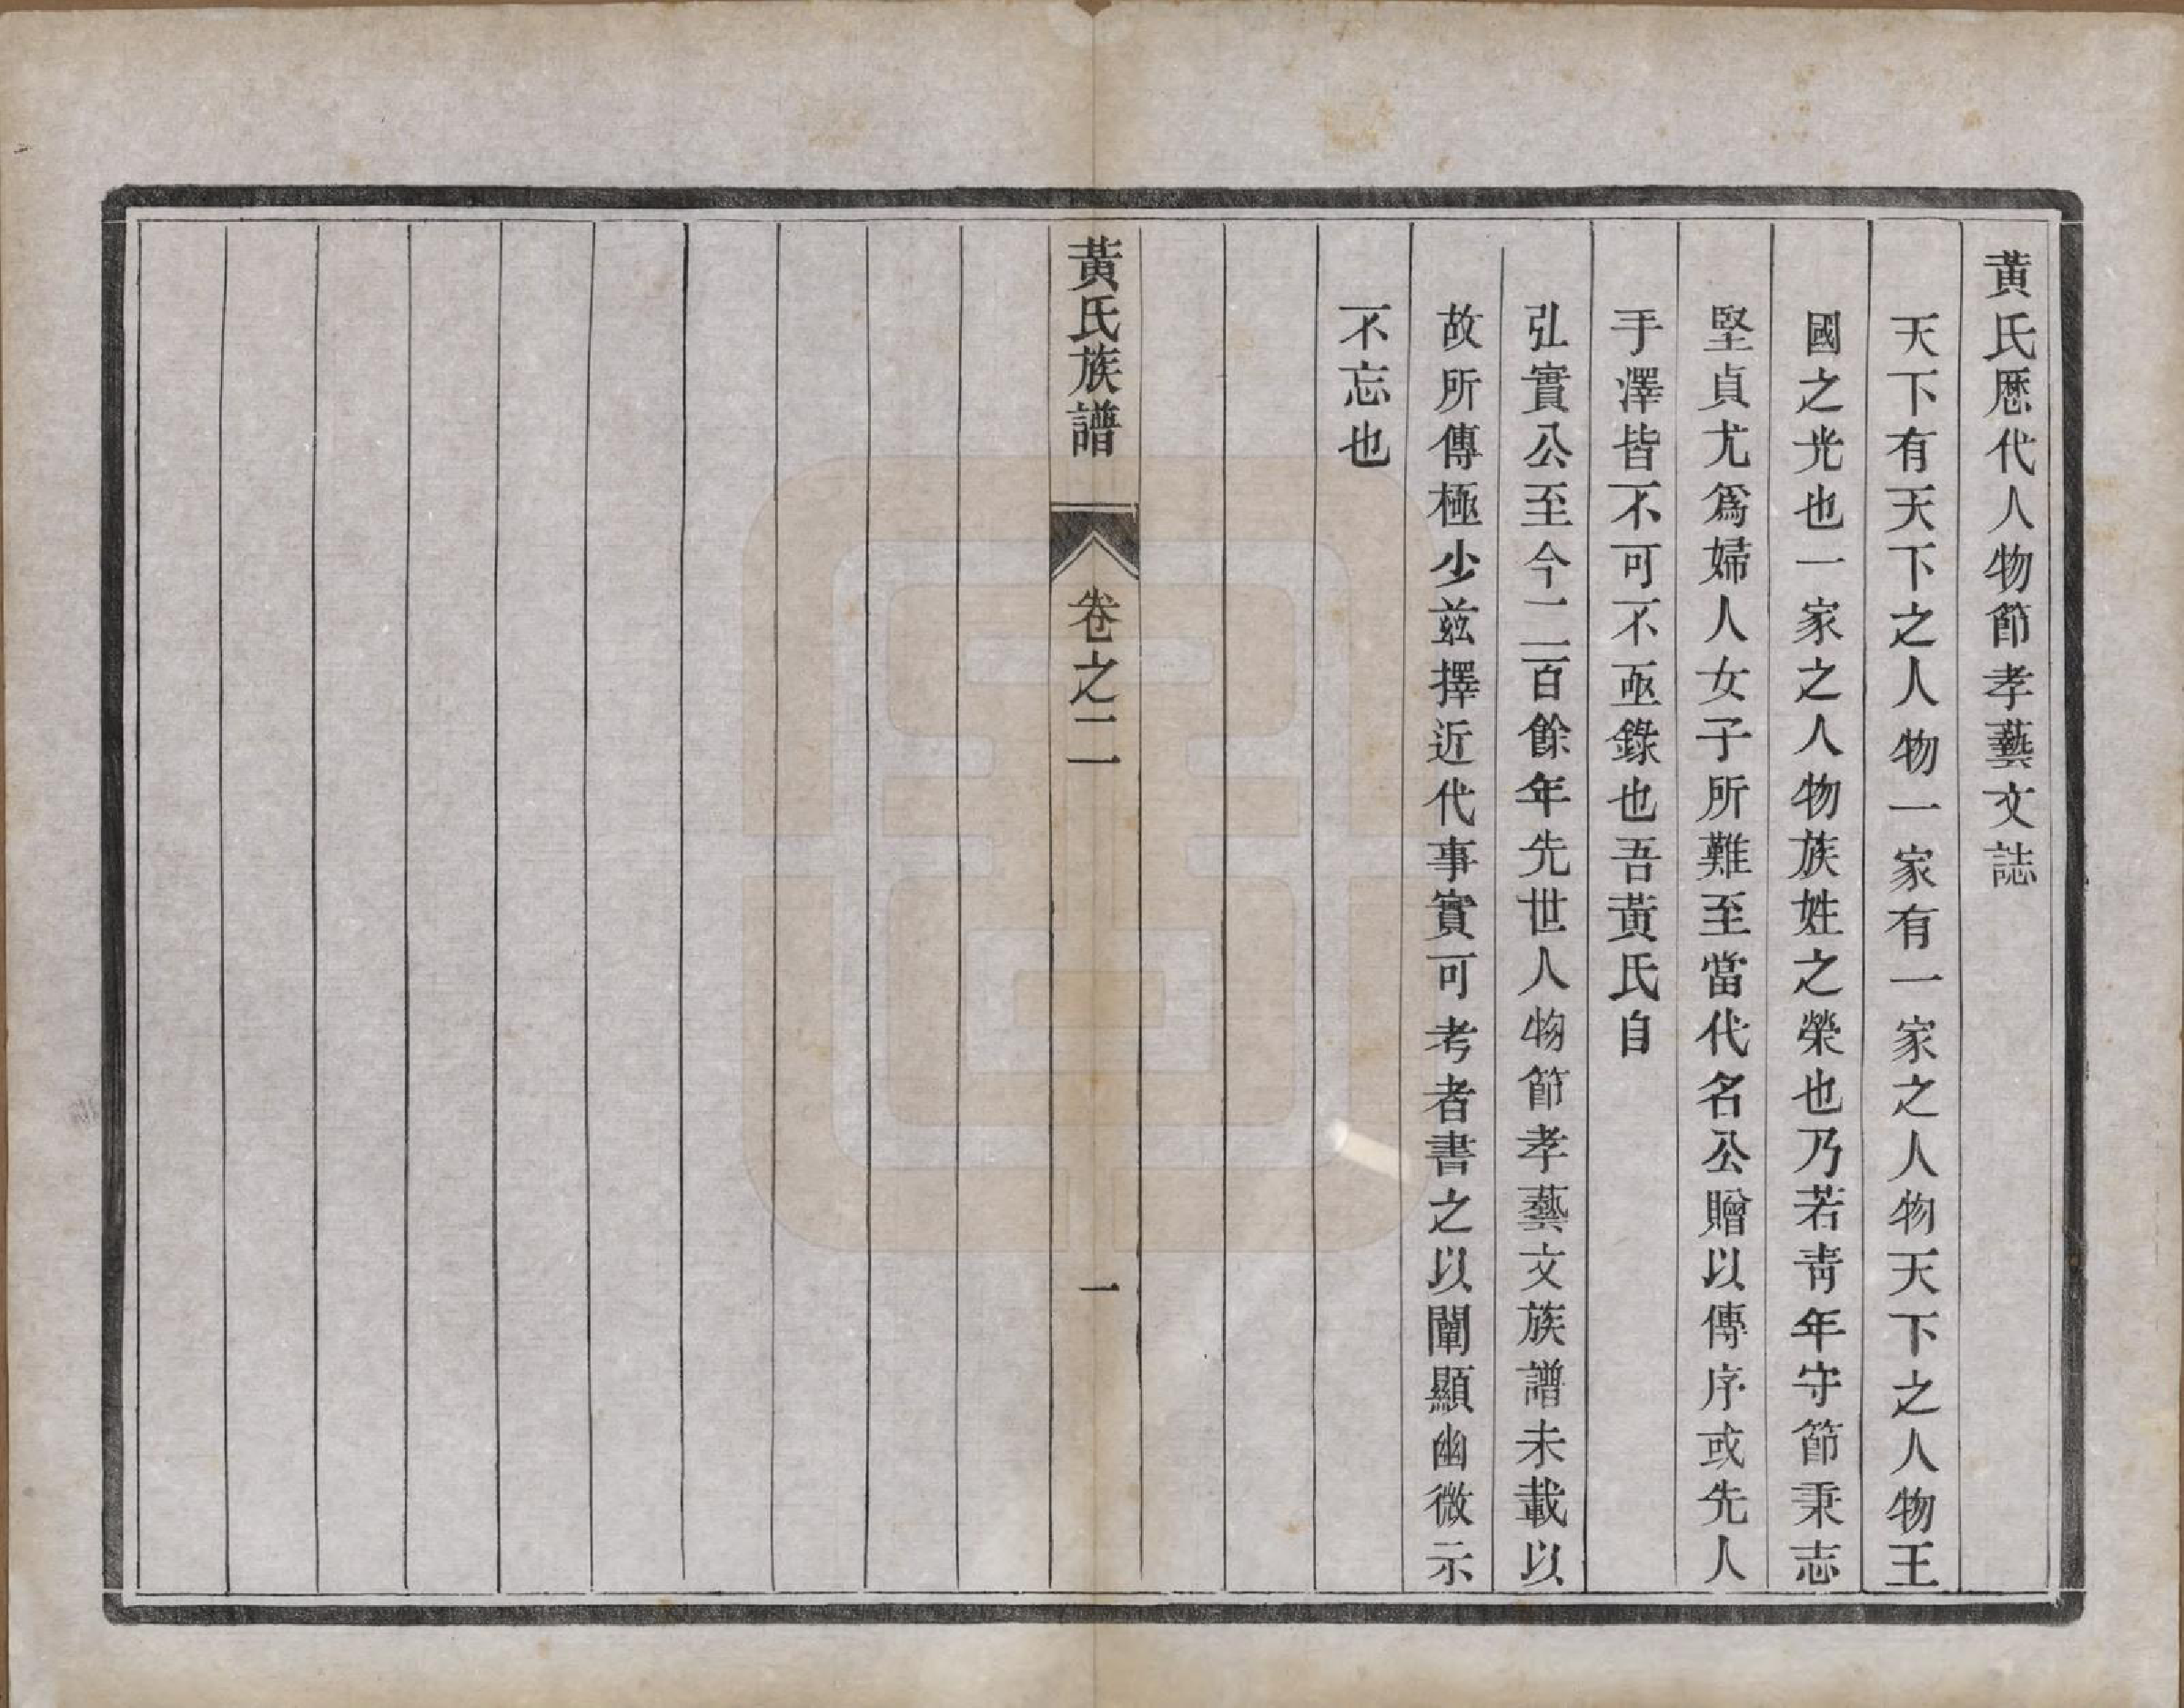 黃氏歷代人物節孝藝文誌
天下有天下之人物一家有一家之人物天下之人物王
國之光也一家之人物族姓之榮也乃若青年守節秉志
堅貞尤爲婦人女子所難至當代名公贈以傳序或先人
手澤皆不可不亟錄也吾黃氏自
弘實公至今二百餘年先世人物節孝藝文族譜未載以
故所傳極少茲擇近代事實可考者書之以闡顯幽微示
不忘也
黃氏族譜 卷之二 一